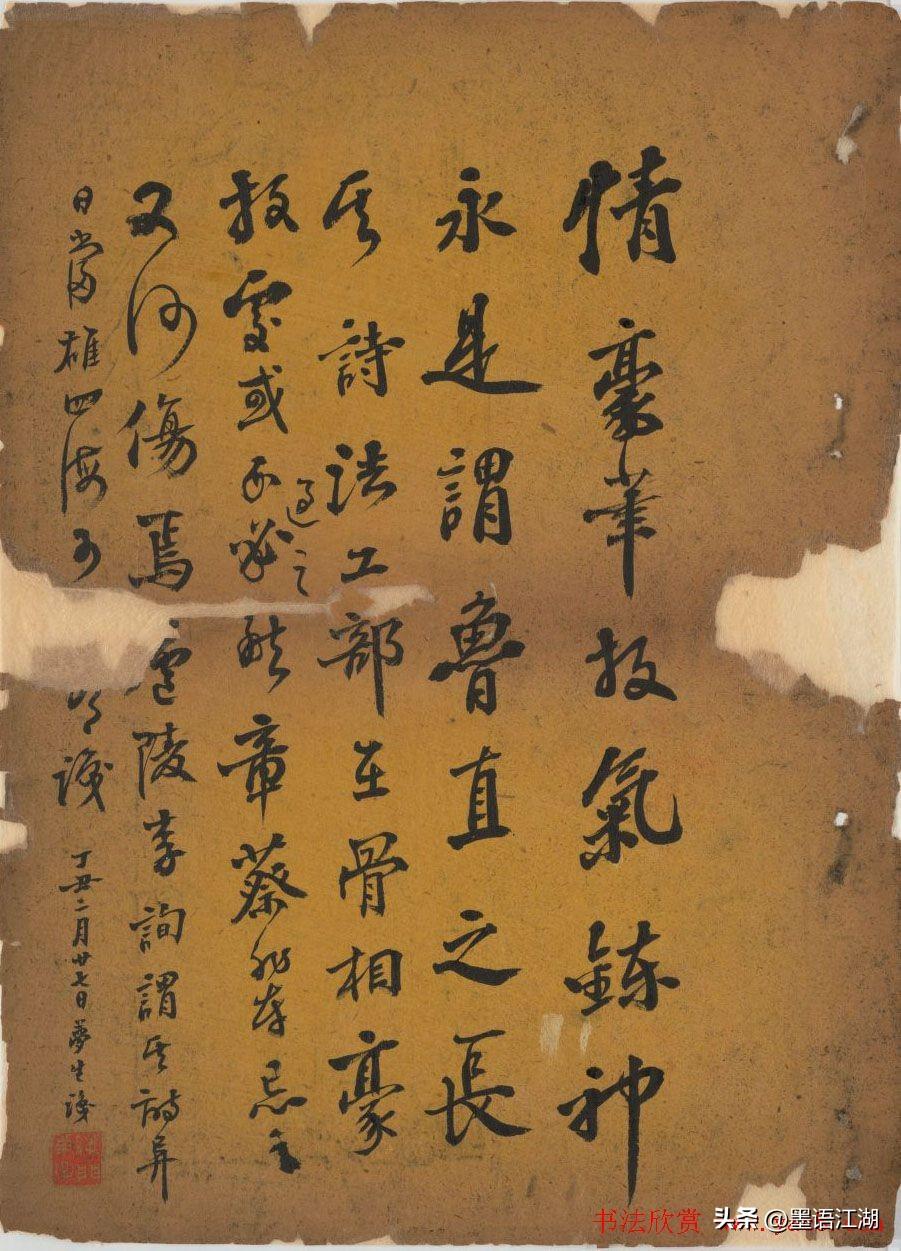 情豪筆放氣鍊神
永是謂魯直之長
其詩法工部在骨相豪
放處或不必
過之
然章蔡非本忌之
又何傷焉
廬陵李詢謂其詩異
日當雄四海
識
丁丑二月廿七日夢生識
书法欣赏
头条 @墨语江湖